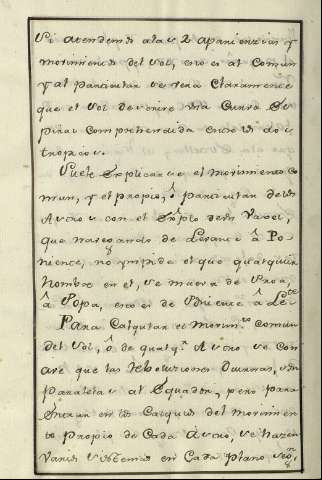 Si atendemos a las 2 apariencias y
movimientos del Sol, esto es al Comun
y al particular se verá Claramente
que el Sol descrive una Curva Es
piral comprehendida entre los dos
tropicos.
Suele Explicarse el movimiento co
mun, y el propio, ô particular de los
Astros con el Exmplo de un Vaxel,
que navegando de Levante â Po
niente, no ympide el que qualquier
hombre en el, se mueva de Proa,
â Popa, esto es de Poniente â Lev.te
Para Calqular el movim.to comun
del Sol, ô de qualq.r Astro se co
que las Reboluziones Diurnas, son
Paralelas al Equador, pero para
en los Calqulos del movimien
to propio de Cada Astro, se hazen
varios sistemas en Cada plano